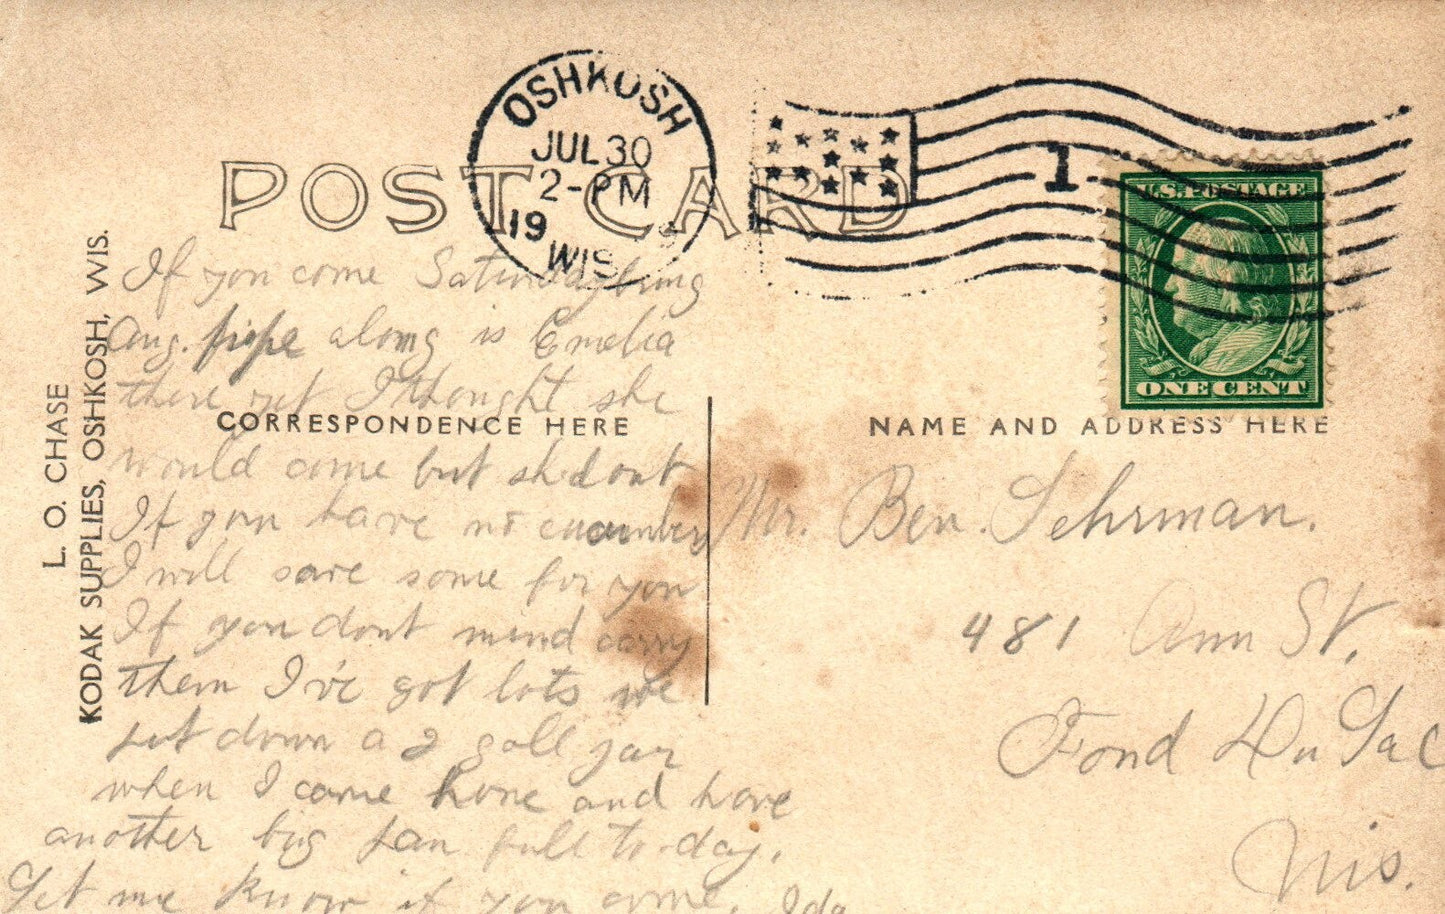 OSHKOSH
JUL 30
2-PM
19
WIS.
1
U.S. POSTAGE
ONE CENT
POST CARD
L. O. CHASE
KODAK SUPPLIES, OSHKOSH, WIS.
CORRESPONDENCE HERE
NAME AND ADDRESS HERE
If you come Saturday bring
Aug. pipe along is Emelia
there yet I thought she
would come but she dont
If you have no cucumbers
I will save some for you
If you dont mind carry
them I've got lots we
put down a 2 gall jar
when I came home and have
another big pan full to-day.
Let me know if you come. Ida
Mr. Ben. Sehrman.
481 Ann St.
Fond Du Lac
Wis.